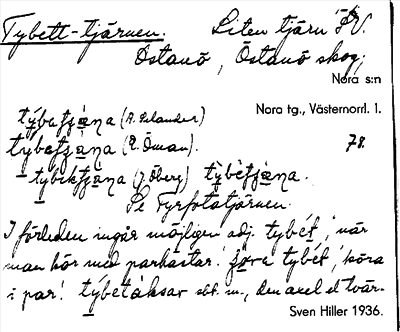 Tybett-tjärnen. Liten tjärn SV.
Östanö, Östanö skog;
Nora s:n
Nora tg., Västernorrl. l.
týbetjæ̀na (A. Selander)
týbetjæ̀na (E. Öman). 78.
- týbektjæ̀na (J. Öberg) ty̆bètjæna.
Se Fyrfotatjärnen.
I förleden ingår möjligen adj. tybét, 'när
man kör med parhästar'. tybét, 'köra
i par'. sbt. m., den axel el tvär-
Sven Hiller 1936.